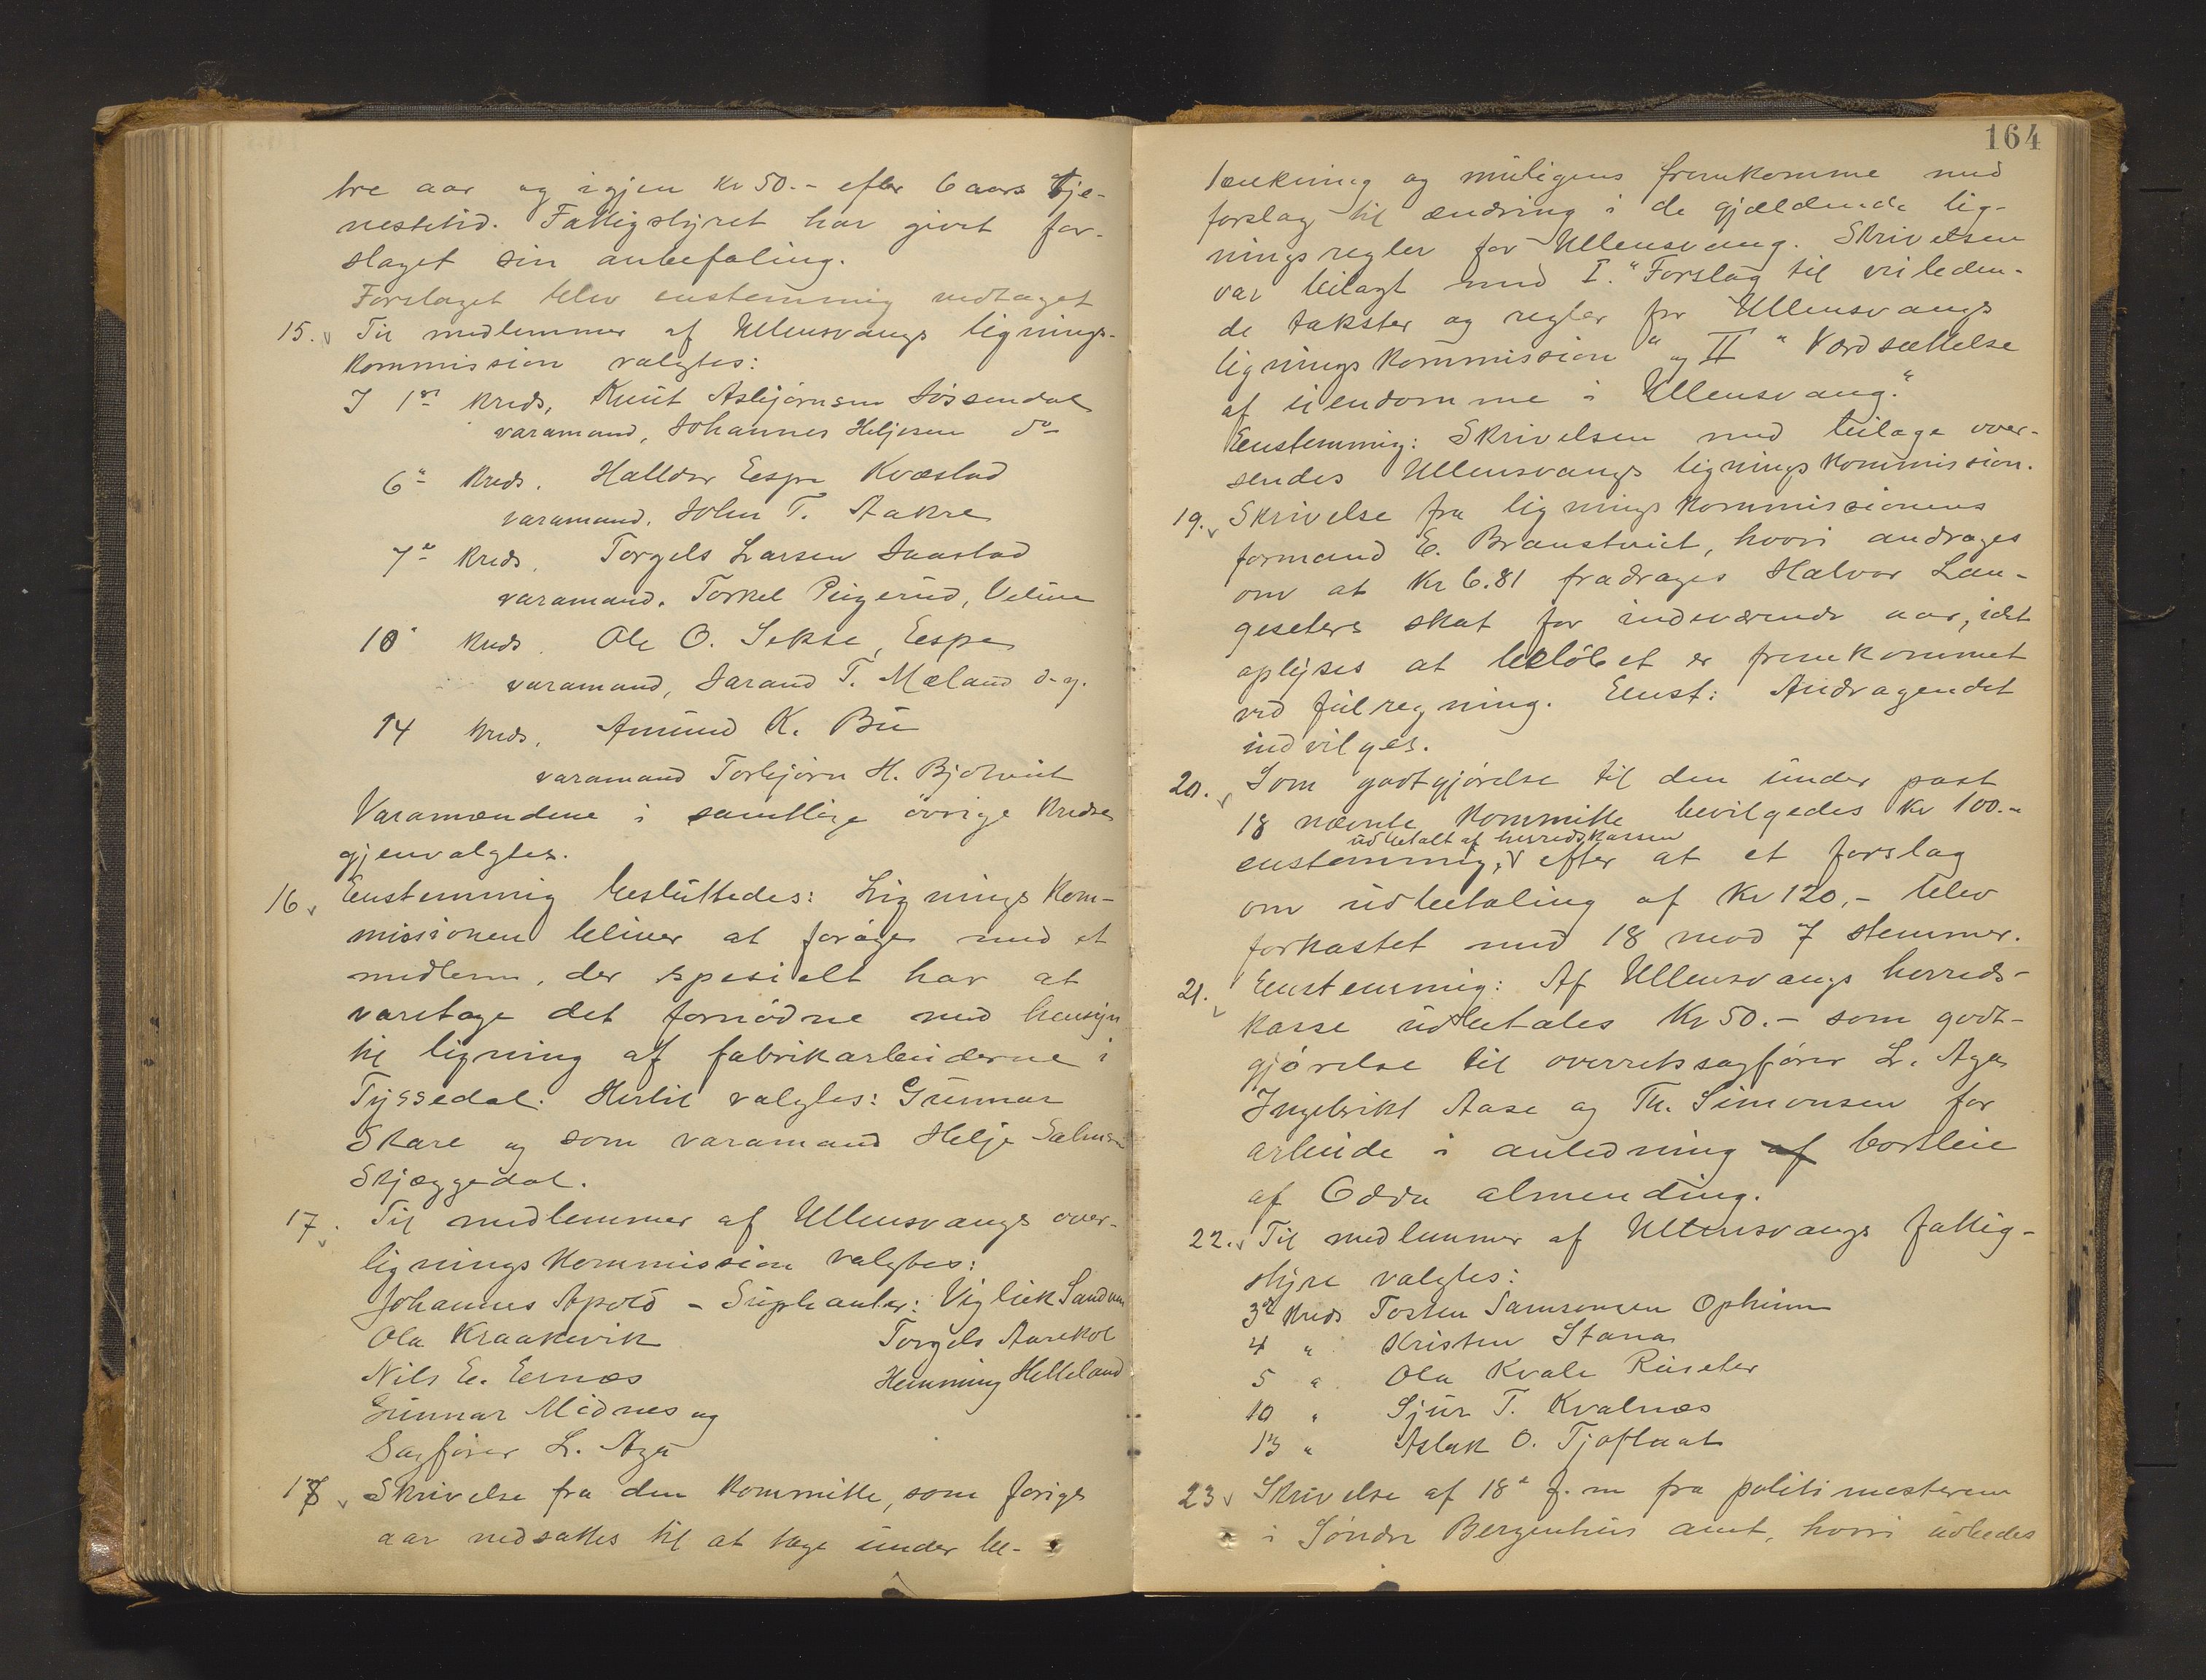 tre aar og igjen Kr 50.- efter 6 aars tje-
nestetid. Fattigstyret har givet for-
slaget sin anbefaling.
Forslaget blev enstemmig vedtaget
15. Til medlemmer af Ullensvangs lignings-
kommission valgtes:
I 1ste kreds, Knut Asbjørnsen Jøssendal
varamand, Johannes Heljesen do
6te kreds. Halldor Eespe Kvæstad
varamand, John T. Aakre
7de kreds. Torgels Larsen Jaastad
varamand. Torkel Pugerud, Velure
10 kreds. Ole O. Sekse, Eespe
varamand, Jarand T. Mæland d.y.
14 kreds. Amund K. Bu
varamand Torbjørn H. Bjotveit
Varamændene i samtlige øvrige kredse
gjenvalgtes.
16. Enstemmig besluttedes: Lignings kom-
missionen bliver at forøge med et
medlem, der spesielt har at
varetage det fornødne med hensyn
til ligning af fabrikarbeiderne i
Tyssedal. Hertil valgtes: Gunnar
Skare og som varamand Helje Salmon
Skjæggedal.
17. Til medlemmer af Ullensvangs over-
ligningskommission valgtes:
Johannes Apold - Suplanter: Vigliek Sandven
Ola Kraakevik Torgels Aarekol
Nils E. Ernæs Henning Helleland
Gunnar Midnes og
Sagfører L. Aga
18 Skrivelse fra den kommitte, som forige
aar nedsattes til at tage under be-
164
tænkning og muligens fremkomme med
forslag til ændring i de gjældende lig-
ningsregler for Ullensvang. Skrivelsen
var bilagt med I. "Forslag til veileden-
de takster og regler for Ullensvangs
ligningskommission" og II "Værdsættelse
af eiendomme i Ullensvang."
Eenstemmig: Skrivelsen med bilage over-
sendes Ullensvangs ligningskommission.
19. Skrivelse fra ligningskommissionens
formand E. Branstveit, hvori andrages
om at Kr 6.81 fradrages Halvor Lan-
gesæters skat for indeværende aar, idet
oplyses at beløbet er fremkommet
ved feilregning. Eenst: Andragendet
indvilges.
20. Som godtgjørelse til den under post
18 nævnte kommitte bevilgedes Kr 100.-
udbetalt af herredskassen
enstemmig, efter at et forslag
om udbetaling af Kr 120,- blev
forkastet med 18 mod 7 stemmer.
21. Eenstemmig: Af Ullensvangs herreds-
kasse udbetales Kr 50.- som godt-
gjørelse til overretssagfører L. Aga
Ingebrikt Aase og Th. Simonsen for
arbeide i anledning af bortleie
af Odda almending.
22. Til medlemmer af Ullensvangs fattig-
styre valgtes:
3de kreds Torsten Samsonsen Opheim
4 " Kristen Stana
5 " Ola Kvale Ruseter
10 " Sjur T. Kvalnæs
13 " Aslak O. Tjoflaat
23 Skrivelse af 18de f.m fra politimesteren
i Søndre Bergenhus amt, hvori udbedes